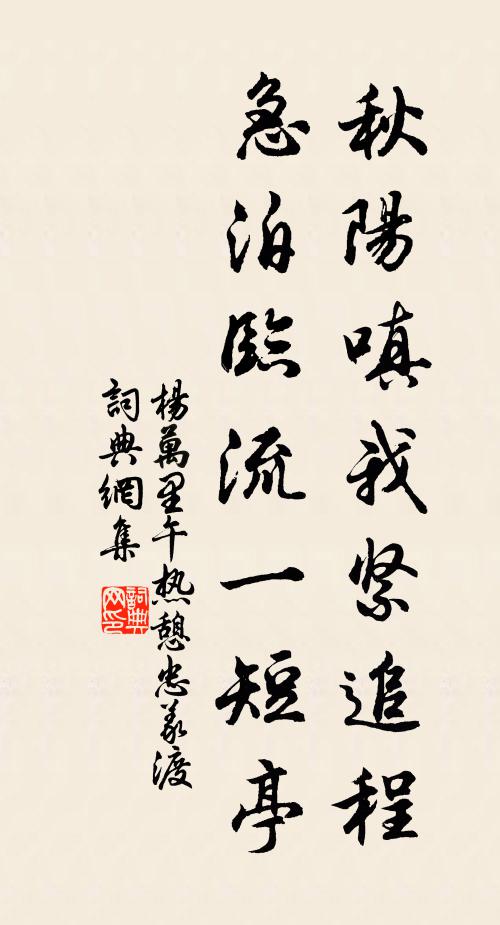 秋陽嗔我緊追程
急泊臨流一短亭
楊萬里午热憩忠義渡
詞典網集
詞典网印